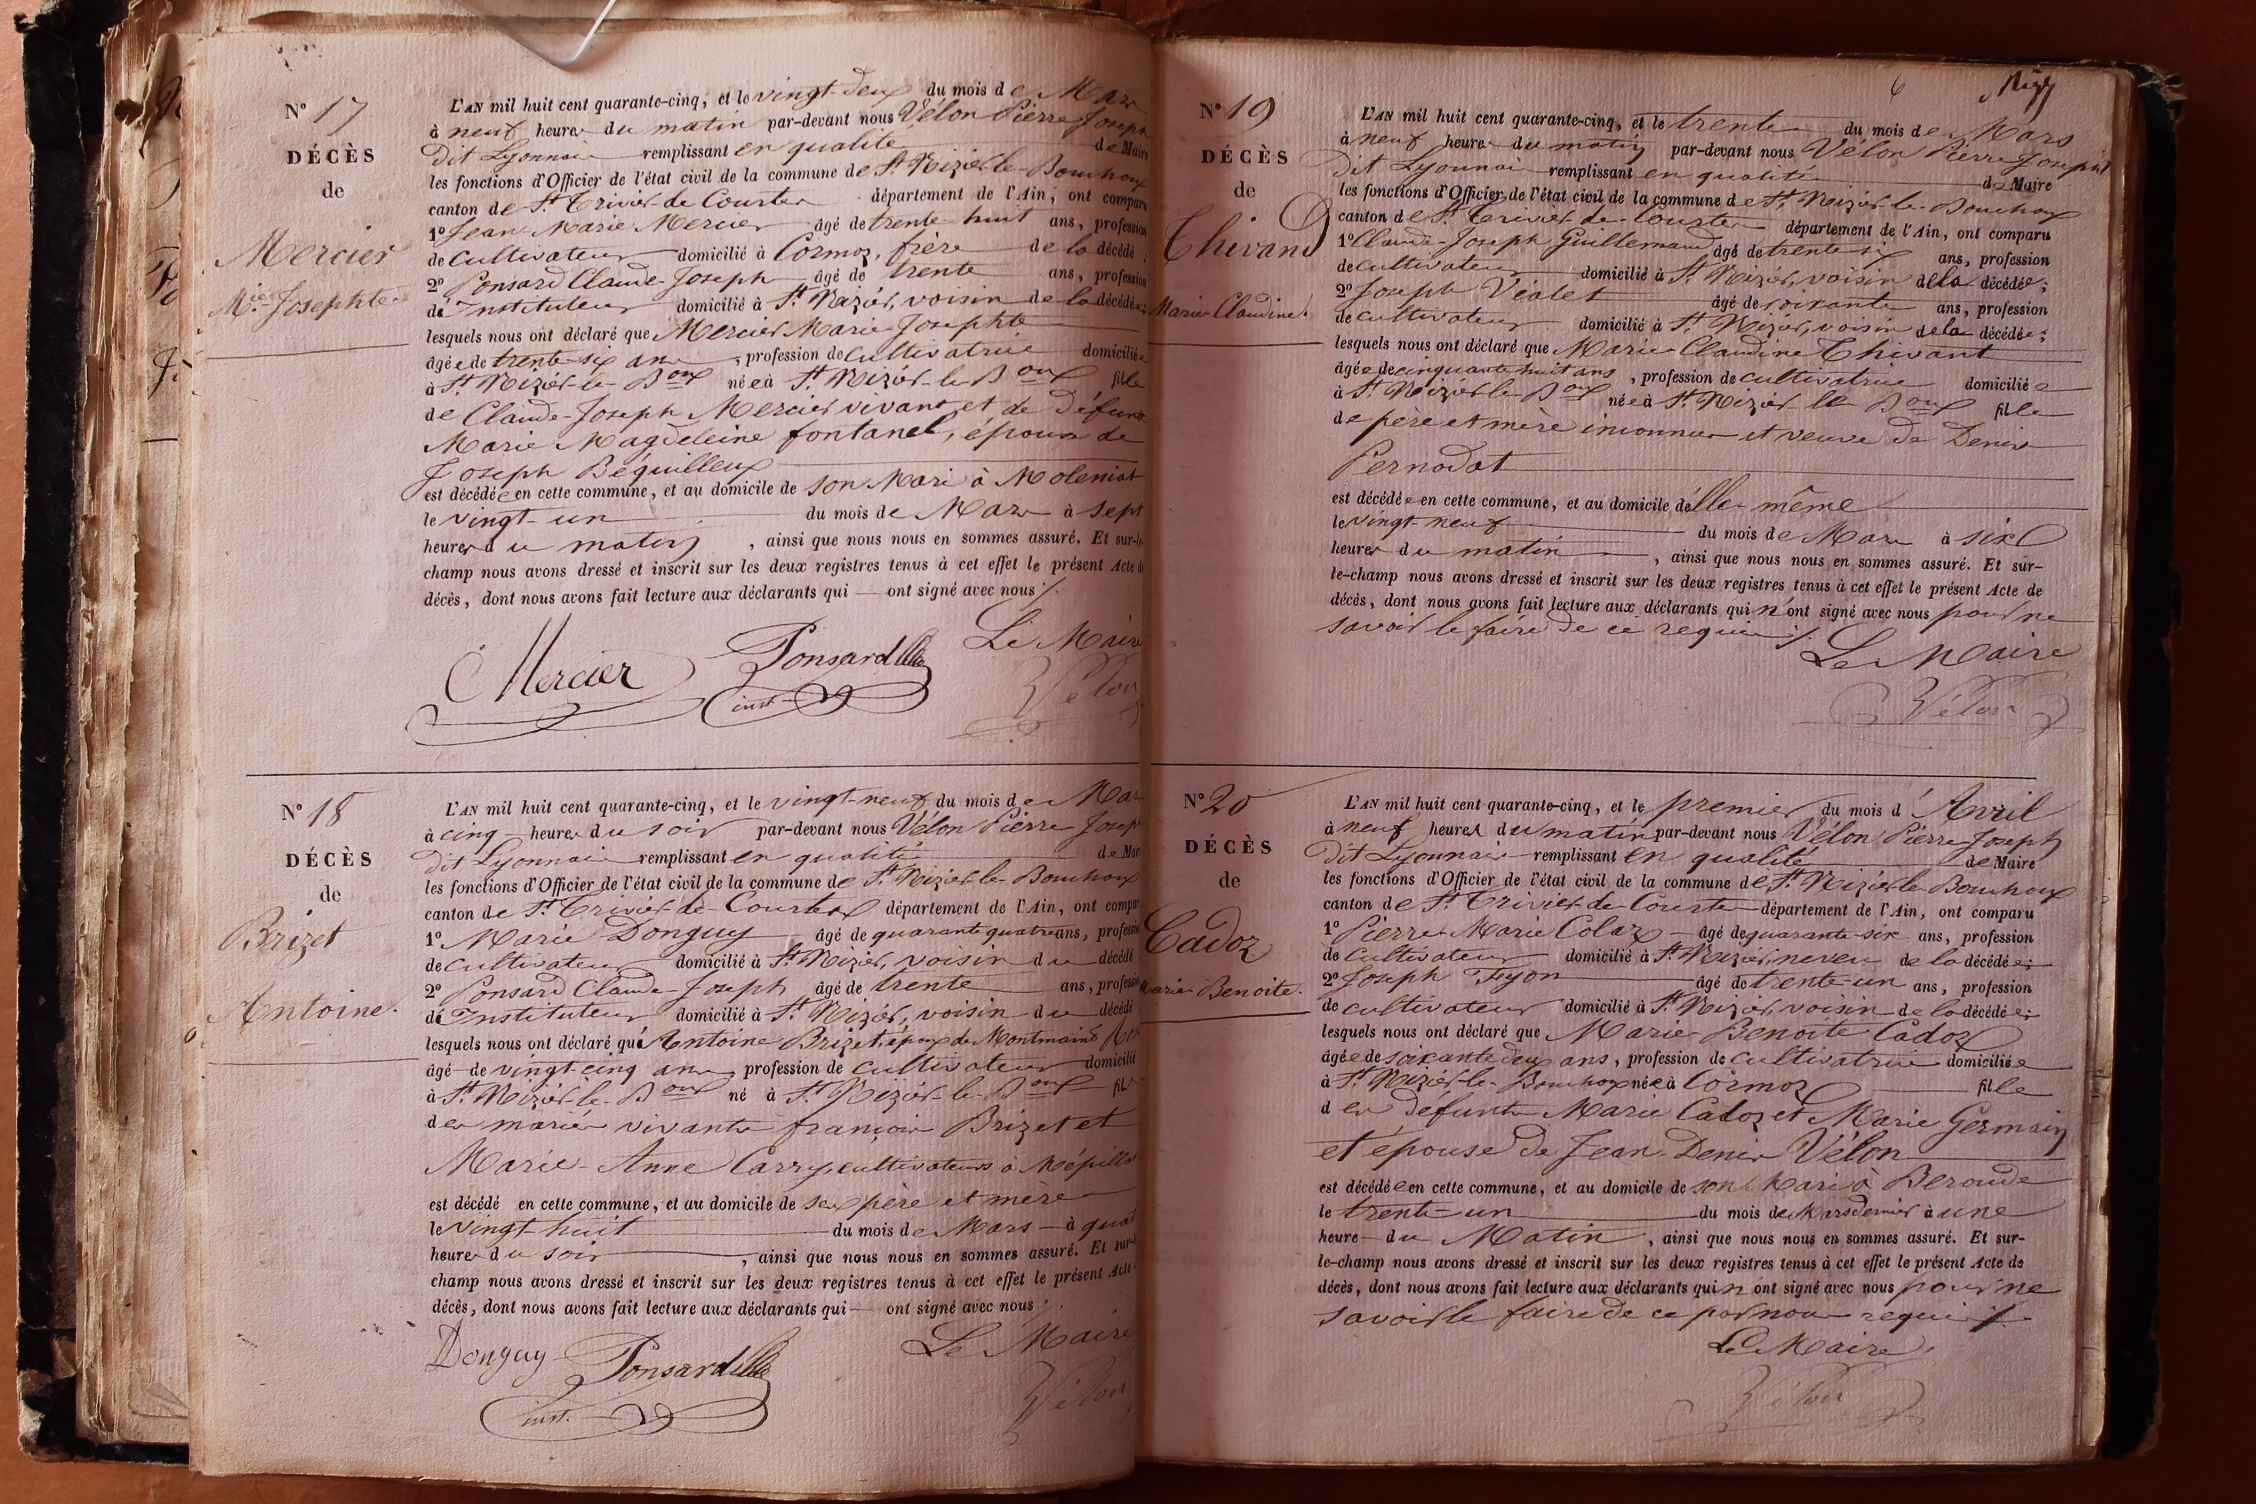 N° 17
DÉCÈS
de
Mercier
Mie Josephte
L'AN mil huit cent quarante-cinq, et le vingt-deux du mois de Mars
à neuf heures du matin par-devant nous Vélon Pierre Joseph
dit Lyonnais remplissant en qualité de Maire
les fonctions d'Officier de l'état civil de la commune de St. Nizier-le-Bouchoux
canton de St. Trivier de Courtes département de l'Ain, ont comparu
1° Jean Marie Mercier âgé de trente-huit ans, profession
de cultivateur domicilié à Cormoz, frère de la décédée;
2° Ponsard Claude-Joseph âgé de trente ans, profession
de Instituteur domicilié à St. Nizier, voisin de la décédée;
lesquels nous ont déclaré que Mercier Marie Josephte
âgée de trente-six ans, profession de cultivatrice domiciliée
à St. Nizier-le-Boux née à St. Nizier-le-Boux fille
de Claude-Joseph Mercier vivant et de défunte
Marie Magdeleine fontanel, épouse de
Joseph Béquilleux
est décédée en cette commune, et au domicile de son Mari à Moleniat
le vingt-un du mois de Mars à sept
heures du matin, ainsi que nous nous en sommes assuré. Et sur-le-
champ nous avons dressé et inscrit sur les deux registres tenus à cet effet le présent Acte de
décès, dont nous avons fait lecture aux déclarants qui ont signé avec nous ./.
Le Maire
Mercier Ponsard
inst. Vélon
N° 18
DÉCÈS
de
Brizet
Antoine.
L'AN mil huit cent quarante-cinq, et le vingt-neuf du mois de Mars
à cinq heures du soir par-devant nous Vélon Pierre Joseph
dit Lyonnais remplissant en qualité de Mai
les fonctions d'Officier de l'état civil de la commune de St. Nizier-le-Bouchoux
canton de St. Trivier-de-Courtes département de l'Ain, ont compar
1° Marie Donguy âgé de quarante quatre ans, profession
de cultivateur domicilié à St. Nizier, voisin du décédé
2° Ponsard Claude-Joseph âgé de trente ans, profession
de Instituteur domicilié à St. Nizier, voisin du décédé
lesquels nous ont déclaré que Antoine Brizet, époux de Montmain
âgé de vingt-cinq ans profession de cultivateur domicilié
à St. Nizier-le-Boux né à St. Nizier-le-Boux fils
des mariés vivants françois Brizet et
Marie-Anne Carry, cultivateurs à Mépillat
est décédé en cette commune, et au domicile de ses père et mère
le vingt-huit du mois de Mars à quat
heures du soir, ainsi que nous nous en sommes assuré. Et sur-
champ nous avons dressé et inscrit sur les deux registres tenus à cet effet le présent Acte
décès, dont nous avons fait lecture aux déclarants qui ont signé avec nous ./.
Donguy Ponsard Le Maire
inst. Vélon
6
N° 19
DÉCÈS
de
Thivand
Marie Claudine.
L'AN mil huit cent quarante-cinq, et le trente du mois de Mars
à neuf heures du matin par-devant nous Vélon Pierre Joseph
dit Lyonnais remplissant en qualité de Maire
les fonctions d'Officier de l'état civil de la commune de St. Nizier-le-Bouchoux
canton de St. Trivier-de-Courtes département de l'Ain, ont comparu
1° Claude-Joseph Guillemaud âgé de trente six ans, profession
de cultivateur domicilié à St. Nizier, voisin de la décédée;
2° Joseph Vialet âgé de soixante ans, profession
de cultivateur domicilié à St. Nizier, voisin de la décédée;
lesquels nous ont déclaré que Marie Claudine Thivant
âgée de cinquante huit ans, profession de cultivatrice domiciliée
à St. Nizier-le-Boux née à St. Nizier-le-Boux fille
de père et mère inconnus et veuve de Denis
Pernodat
est décédée en cette commune, et au domicile d'elle-même
le vingt-neuf du mois de Mars à six
heures du matin, ainsi que nous nous en sommes assuré. Et sur-
le-champ nous avons dressé et inscrit sur les deux registres tenus à cet effet le présent Acte de
décès, dont nous avons fait lecture aux déclarants qui n'ont signé avec nous pour ne
savoir le faire de ce requis ./.
Le Maire
Vélon
N° 20
DÉCÈS
de
Cadoz
Marie Benoite.
L'AN mil huit cent quarante-cinq, et le premier du mois d'Avril
à neuf heures du matin par-devant nous Vélon Pierre Joseph
dit Lyonnais remplissant en qualité de Maire
les fonctions d'Officier de l'état civil de la commune de St. Nizier-le-Bouchoux
canton de St. Trivier-de-Courtes département de l'Ain, ont comparu
1° Pierre-Marie Colaz âgé de quarante-six ans, profession
de cultivateur domicilié à St. Nizier, neveu de la décédée;
2° Joseph Feyon âgé de trente-un ans, profession
de cultivateur domicilié à St. Nizier, voisin de la décédée;
lesquels nous ont déclaré que Marie Benoite Cadoz
âgée de soixante deux ans, profession de cultivatrice domiciliée
à St. Nizier-le-Bouchoux née à Cormoz fille
des défunts Marie Cadoz et Marie Germain
et épouse de Jean-Denis Vélon
est décédée en cette commune, et au domicile de son Mari à Beroude
le trente-un du mois de Mars dernier à une
heure du Matin, ainsi que nous nous en sommes assuré. Et sur-
le-champ nous avons dressé et inscrit sur les deux registres tenus à cet effet le présent Acte de
décès, dont nous avons fait lecture aux déclarants qui n'ont signé avec nous pour ne
savoir le faire de ce par nous requis ./.
Le Maire.
Vélon